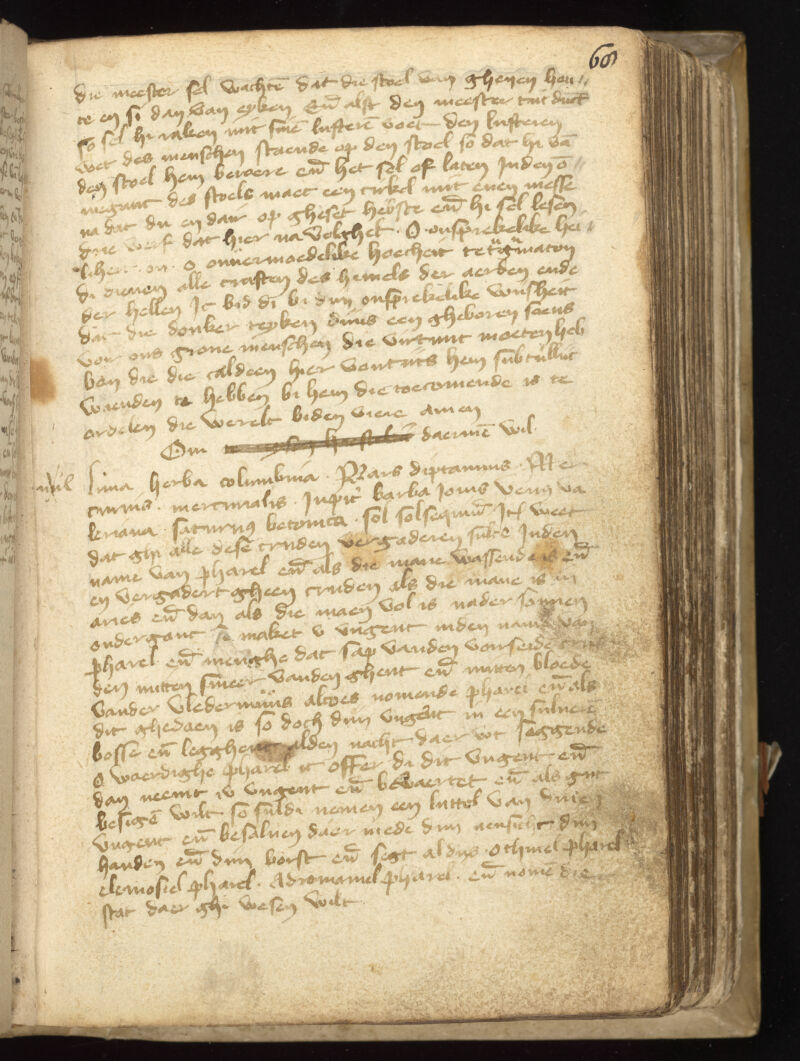 68
die meester sel wachtē dat die stoel van ghenen hou //
te en si dan van eyken Eñ alst den meester tiit dūct
so sel hi raken mit sinē lufterē voet den lufteren
voet des menschen staende op den stoel so dat hi vā
den stoel hem beroere eñ het sel of laten Inden ō //
megant des stoels maet een cirkel mit enen messe
na dat du en dair op gheset hebste eñ hi sel lesen
drie werf dat hier na volghet . O onsprekelike hei //
O onuermoedelike hoecheit tetragramaton
di dienen alle craften des hemels der aerden ende
der hellen Ic bid di bi dijn onsprekelike wiisheit
dat die donker teyken diins een gheboren soens
voir ons grone menschen die virtuut moeten heb
ben die die caldeen hier voirtiits hem subtiilliic
waenden te hebben bi hem die toecomende is te
ordelen die werelt biden viere Amen
Om daermē wil .
Luna herba columbina . Mars diptamus . Mer
curius . mercurialis . Iupit' barba Iovis Venus va
leriana . Saturnus betonica . Sol solsequiū Itē weet
dat ghi alle dese cruden vergaderen sulte Inden
name van pharel eñ als die mane wassende is eñ
en vergadert gheen cruden als die mane is in
aries eñ dan als die maen vol is nader sonnen
ondergant maket v vngent inden name van
pharel eñ menghe dat sap vanden voirseide cru
den mitten smeer vanden gheit eñ mitten bloede
vander vledermuus altoes nomende pharel eñ als
dit ghedaen is so doch dijn vngent in een siluere
bosse eñ legghent alden nacht daer wt seggende
O waerdighe pharel ic offer di dit vngent eñ
dan neemt v vngent eñ bewaertet eñ als ghiit
besigē wilt so suldi nemen een luttel van
vngent eñ besaluen daer mede dijn aensicht dijn
handen eñ dijn borst eñ segt aldus . Othmel pharel
elemosiel pharel . Adromamel pharel . eñ nomē die
stat daer ghi wesen wilt .